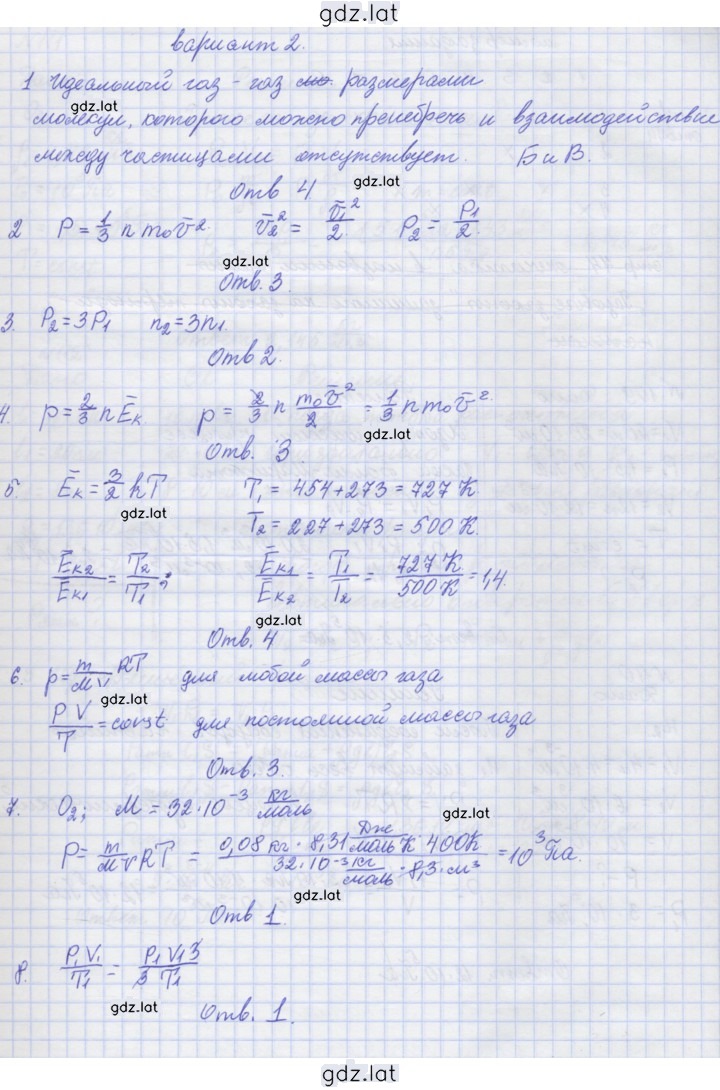 gdz.lat
вариант 2.
1 Идеальный газ - газ размерами
gdz.lat
молекул, которого можно пренебречь и взаимодействие
между частицами отсутствует. Б и В.
gdz.lat
Отв 4
2 P = 1/3 n m₀ v̄². v̄₂² = v̄₁²/2. P₂ = P₁/2.
gdz.lat
Отв. 3.
3. P₂ = 3P₁ n₂ = 3n₁.
Отв 2.
4. p = 2/3 n Ēк p = 2/3 n m₀v̄²/2 = 1/3 n m₀ v̄².
gdz.lat
Отв. 3
5. Ēк = 3/2 kT T₁ = 454 + 273 = 727 К
gdz.lat
T₂ = 227 + 273 = 500 К.
Ēк2/Ēк1 = T₂/T₁; Ēк1/Ēк2 = T₁/T₂ = 727 К/500 К = 1,4.
gdz.lat
Отв. 4
6. p = m/MV RT для любой массы газа
gdz.lat
PV/T = const для постоянной массы газа
Отв. 3.
7. O₂; M = 32·10⁻³ кг/моль
gdz.lat
P = m/MV RT = 0,08 кг · 8,31 Дж/моль К · 400К / 32·10⁻³ кг/моль · 8,3 · см³ = 10³ Па.
gdz.lat
Отв 1.
8. P₁V₁/T₁ = P₁V₁3/3T₁
gdz.lat
Отв. 1.
gdz.lat